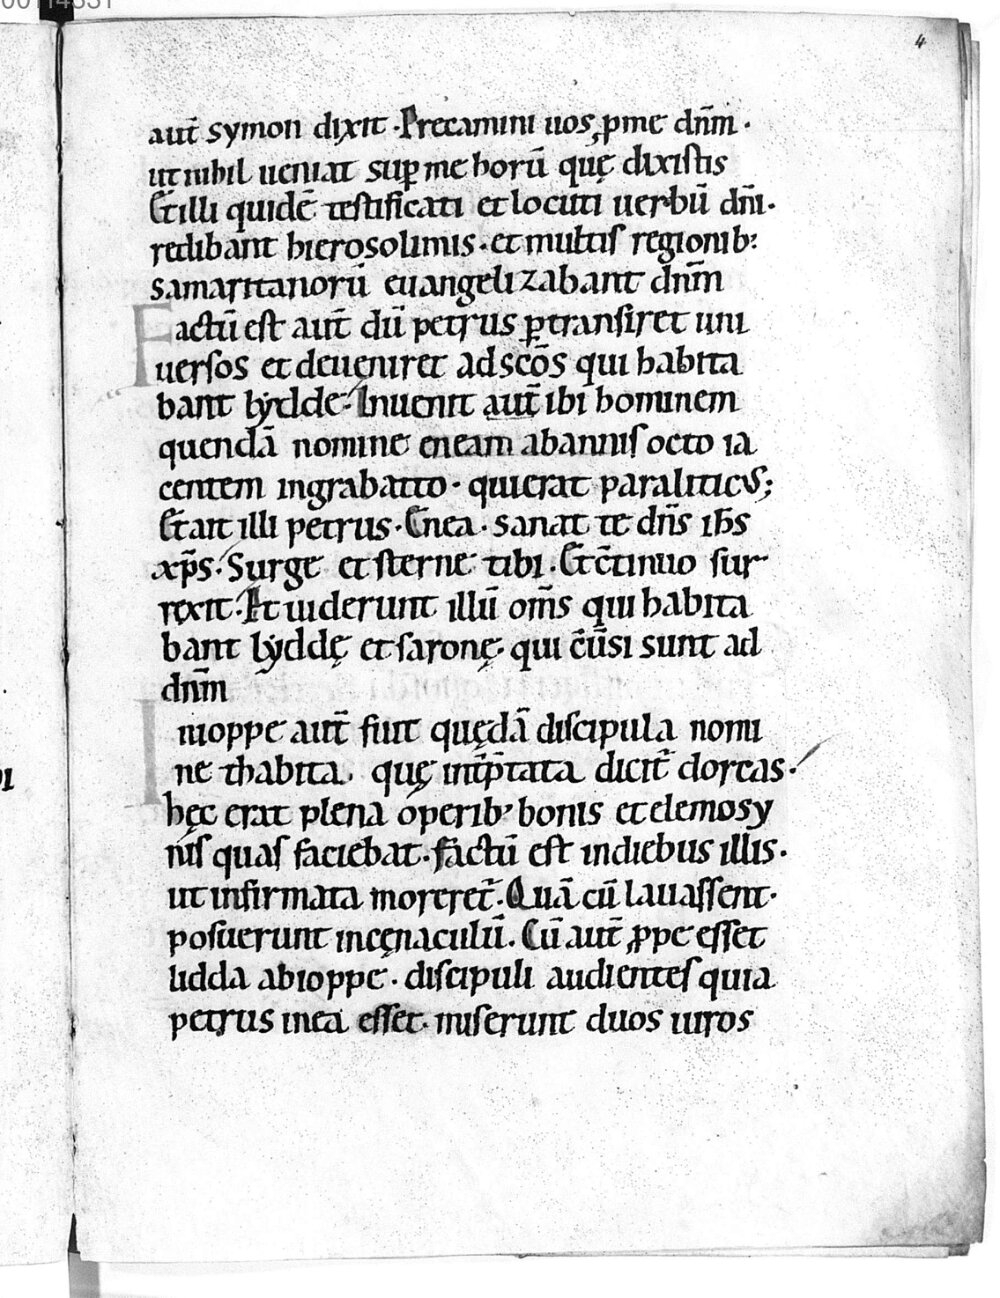 4
aut̄ symon dixit · Precamini uos ꝓ me dn̄m ·
ut nihil ueniat sup̱ me horū quę dixistis
Et illi quidē testificati et locuti uerbū dn̄i ·
redibant hierosolimis · et multis regionib:
samaritanorū euangelizabant dn̄m
Factū est aut̄ dū petrus ꝑtransiret uni
uersos et deueniret ad sc̄os qui habita
bant lydde · Inuenit aut̄ ibi hominem
quendā nomine eneam ab annis octo ia
centem in grabatto · qui erat paraliticus;
Et ait illi petrus · Enea · sanat te dn̄s ih̄s
xp̄s · Surge et sterne tibi · Et c̄tinuo sur
rexit · Et uiderunt illū om̄s qui habita
bant lyddę et saronę · qui c̄uersi sunt ad
dn̄m
In ioppe aut̄ fuit quędā discipula nomi
ne thabita · quę int̄p̄tata dicit̄ dorcas ·
hęc erat plena operib; bonis et elemosy
nis quas faciebat · factū est in diebus illis ·
ut infirmata moreret̄ · Quā cū lauassent ·
posuerunt in cęnaculū · Cū aut̄ ꝓpe esset
lidda ab ioppe · discipuli audientes quia
petrus in ea esset · miserunt duos uiros